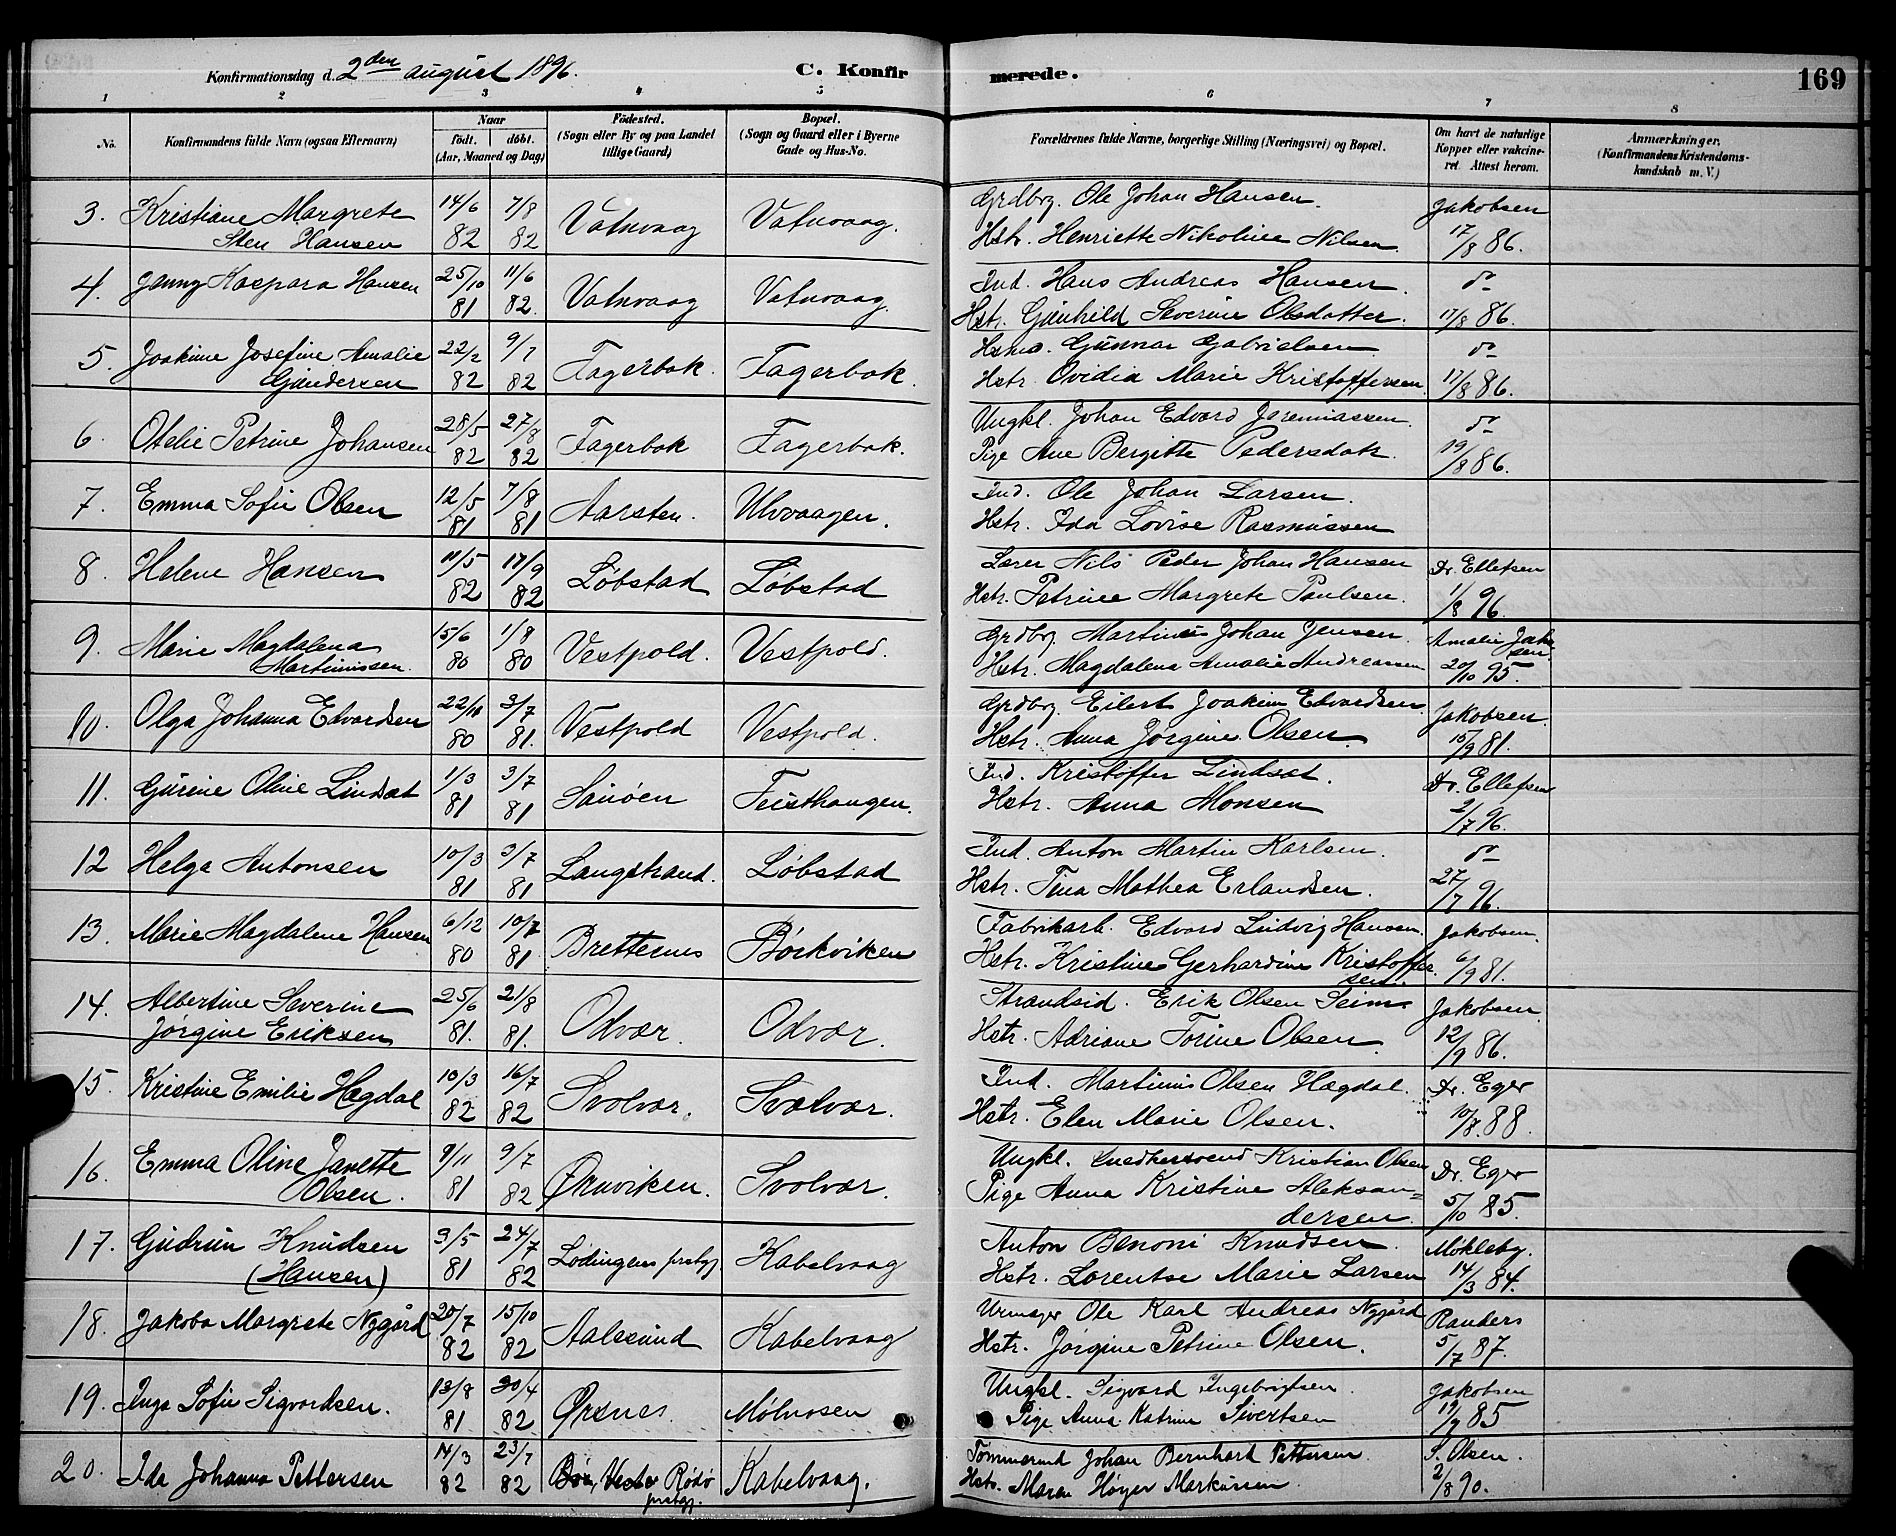 Konfirmationsdag d. 2den august 1896. C. Konfirmerede. 169
1 2 3 4 5 6 7 8
No. Konfirmandens fulde Navn (ogsaa Efternavn) Naar født. døbt. (Aar, Maaned og Dag) Fødested. (Sogn eller By og paa Landet tillige Gaard) Bopæl. (Sogn og Gaard eller i Byerne Gade og Hus-No. Forældrenes fulde Navne, borgerlige Stilling (Næringsvei) og Bopæl. Om havt de naturlige Kopper eller vakcineret. Attest herom. Anmærkninger. (Konfirmandens Kristendomskundskab m. V.)
3. Kristiane Margrete 14/6 7/8 Vatnvaag Vatnvaag. Grdbrg. Ole Johan Hansen. Jakobsen
Sten Hansen 82 82 Hstr. Henriette Nikoline Nilsen. 17/8 86.
4. Jenny Kaspara Hansen 25/10 11/6 Vatnvaag Vatnvaag. Ind. Hans Andreas Hansen. do
81 82. Hstr. Gunhild Severine Olsdatter. 17/8 86.
5. Joakime Josefine Amalie 22/2 9/7 Fagerbak. Fagerbak. Hsmd. Gunnar Gabrielsen do
Gundersen 82 82 Hstr. Ovidia Marie Kristoffersen 17/8 86.
6. Otelie Petrine Johansen 28/5 27/8 Fagerbak Fagerbak. Ungkl. Johan Edvard Jeremiassen. do
82 82 Pige Ane Bergitte Pedersdatr. 19/8 86.
7. Emma Sofie Olsen 12/5 7/8 Aarsten. Ulvvaagen. Ind. Ole Johan Larsen.
81 81 Hstr. Ida Lovise Rasmussen
8. Helene Hansen 11/5 17/9 Løbstad Løbstad Lærer Nils Peder Johan Hansen Dr. Ellefsen
82 82 Hstr. Petrine Margrete Paulsen. 1/8 96.
9. Marie Magdalena 15/6 1/8 Vestpold. Vestpold. Grdbrg. Martinus Johan Jensen. Amalie Jakobsen.
Martinussen. 80 80 Hstr. Magdalena Amalie Andreassen 20/10 95.
10. Olga Johanna Edvardsen 22/10 3/7 Vestpold Vestpold. Grdbrg. Eilert Joakim Edvardsen. Jakobsen.
80 81. Hstr. Anna Jørgine Olsen. 15/9 81.
11. Gurine Oline Lindset 1/3 3/7 Sauøen Teisthaugen. Ind. Kristoffer Lindset. Dr. Ellefsen
81 81 Hstr. Anna Monsen 2/7 96.
12 Helga Antonsen 10/3 3/7 Langstrand. Løbstad Ind. Anton Martin Karlsen. do
81 81 Hstr. Tina Mathea Erlandsen. 27/7 96.
13. Marie Magdalene Hansen 6/12 10/7 Brettesnes Børkviken Fabrikarb. Edvard Ludvig Hansen. Jakobsen.
80 81 Hstr. Kristine Gerhardine Kristoffersen. 6/9 81.
14. Albertine Severine 25/6 21/8 Odvær. Odvær. Strandsid. Erik Olsen Seim Jakobsen
Jørgine Eriksen 81. 81. Hstr. Adriane Torine Olsen. 12/9 86.
15. Kristine Emilie Hægdal 10/3 16/7 Svolvær. Svolvær. Ind. Martinus Olsen Hægdal. Dr. Eger
82 82 Hstr. Elen Marie Olsen. 10/8. 88.
16. Emma Oline Janette 9/11 9/7 Ørnviken. Svolvær. Ungkl. Snedkersvend Kristian Olsen Dr. Eger
Olsen. 81 82 Pige Anna Kristine Aleksandersen 5/10 85.
17. Gudrun Knudsen 3/5 24/7 Lødingens prstgj. Kabelvaag Anton Benoni Knudsen. Møkleby.
(Hansen) 81 82 Hstr. Lorentse Marie Larsen 14/3 84.
18. Jakoba Margrete Nygård 20/7 15/10 Aalesund Kabelvaag Urmager Ole Karl Andreas Nygård Randers
82 82 Hstr. Jørgine Petrine Olsen. 5/7 87.
19. Inga Sofie Sigvardsen. 13/8 30/4 Ørsnes Mølnosen Ungkl. Sigvard Ingebrigtsen. Jakobsen
81 82 Pige Anna Katrine Sivertsen 19/9 85
20. Ida Johanna Pettersen 14/3 23/7 Vester Rødø prstgj. Kabelvaag. Tømmermd Johan Bernhard Pettersen S. Olsen.
82 82 Hstr. Maren Høyer Markussen. 2/8 90.